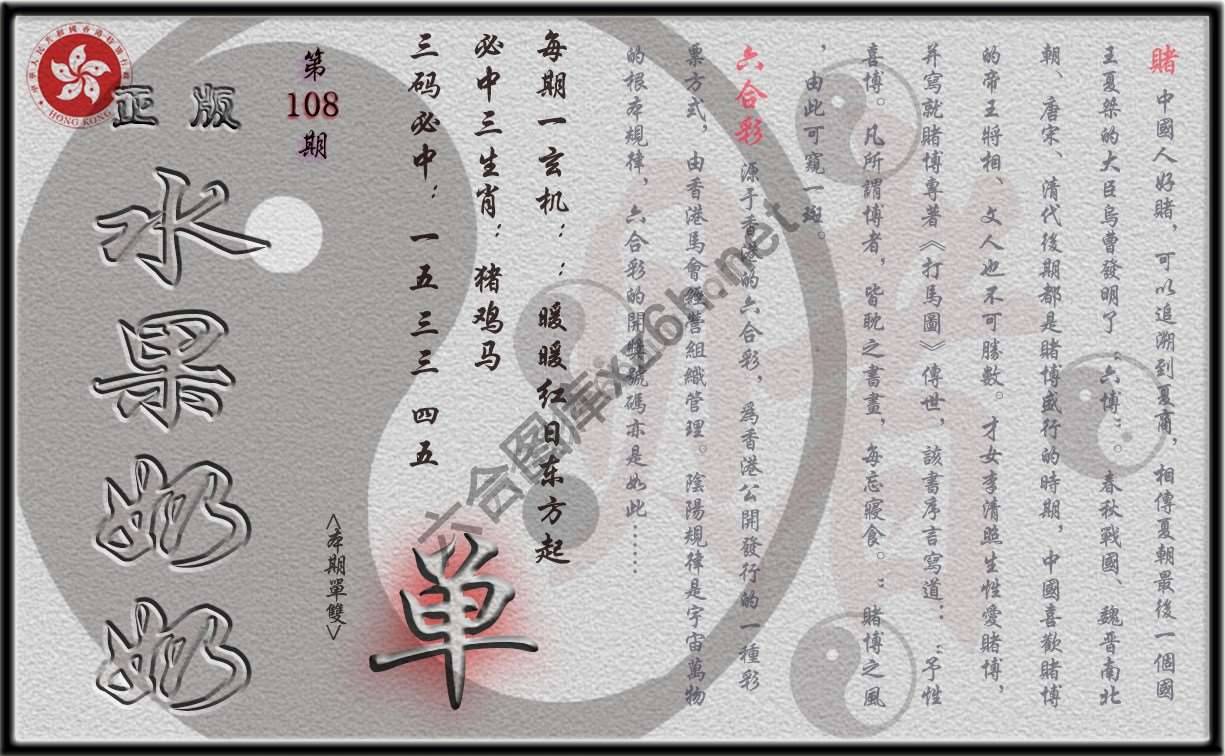 賭 中國人好賭，可以追溯到夏商，相傳夏朝最後一個國
王夏桀的大臣烏曹發明了“六博”。春秋戰國、魏晋南北
朝、唐宋、清代後期都是賭博盛行的時期，中國喜歡賭博
的帝王將相、文人也不可勝數。才女李清照生性愛賭博，
并寫就賭博專著《打馬圖》傳世，該書序言寫道：“予性
喜博。凡所謂博者，皆耽之書畫，每忘寢食。”賭博之風
，由此可窺一斑。
六合彩 源于香港的六合彩，為香港公開發行的一種彩
票方式，由香港馬會經營組織管理。陰陽規律是宇宙萬物
的根本規律，六合彩的開獎號碼亦是如此……
每期一玄机：：暖暖红日东方起
必中三生肖：猪鸡马
三码必中：一五 三三 四五
单
<本期單雙>
第
108
期
正版
水果奶奶
HONG KONG
六合图库xg16h.net